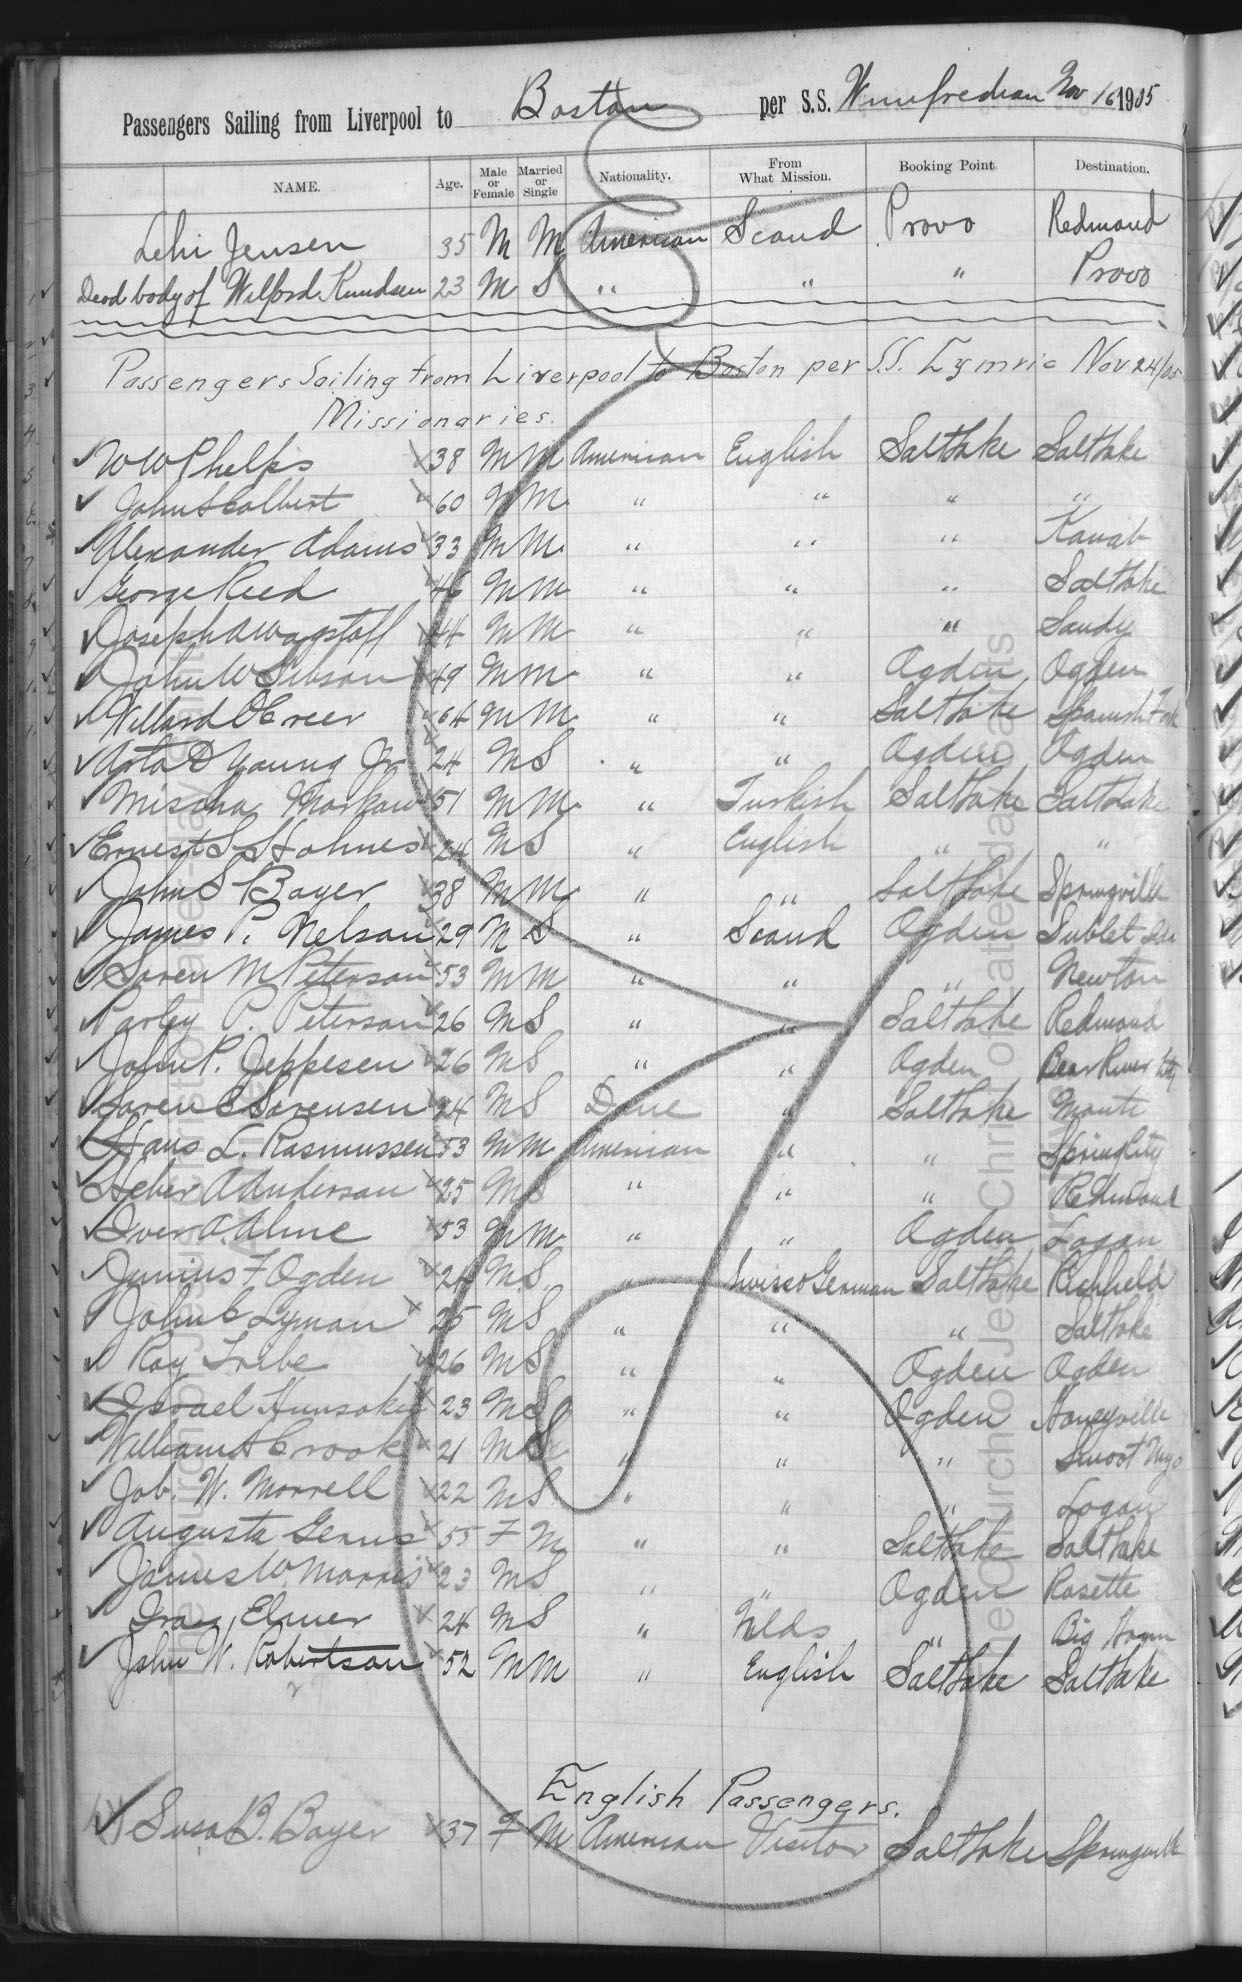 Passengers Sailing from Liverpool to Boston per S.S. Winifredian Nov 16 1905
NAME. Age. Male or Female Married or Single Nationality. From What Mission. Booking Point. Destination.
Lehi Jensen 35 M M American Scand Provo Redmond
Dead body of Wilford Knudsen 23 M S " " " Provo
Passengers Sailing from Liverpool to Boston per S.S. Cymric Nov 24/05
Missionaries.
W W Phelps 38 M M American English Salt Lake Salt Lake
John S Colbert 60 M M " " " "
Alexander Adams 33 M M " " " Kanab
George Reed 46 M M " " " Salt Lake
Joseph A Wagstaff 44 M M " " " Sandy
John W Gibson 49 M M " " Ogden Ogden
Willard O Creer 64 M M " " Salt Lake Spanish Fork
Arta D Young Jr 24 M S " " Ogden Ogden
Mischa Markow 51 M M " Turkish Salt Lake Salt Lake
Ernest S Holmes 24 M S " English " "
John S Boyer 38 M M " " Salt Lake Springville
James P. Nelson 29 M S " Scand Ogden Sublet
Soren M Peterson 53 M M " " " Newton
Parley P. Peterson 26 M S " " Salt Lake Redmond
John P. Jeppesen 26 M S " " Ogden Bear River City
Soren C Sorensen 24 M S Dane " Salt Lake Manti
Hans L. Rasmussen 53 M M American " " Spring City
Heber A Anderson 25 M S " " " Redmond
Iver A. Alme 53 M M " " Ogden Logan
Junius F Ogden 24 M S " Swiss & German Salt Lake Richfield
John C Lyman 25 M S " " " Salt Lake
Ray Tribe 26 M S " " Ogden Ogden
Israel Hunsaker 23 M S " " Ogden Honeyville
William A Crook 21 M S " " " Smoot Wyo
Job. W. Morrell 22 M S " " " Logan
Augusta 55 F M " " Salt Lake Salt Lake
James W. Morris 23 M S " " Ogden Rosette
Elmer 24 M S " Nlds " Big Horn
John W. Robertson 52 M M " English Salt Lake Salt Lake
29
English Passengers.
Susa B. Boyer 37 F M American Visitor Salt Lake Springville